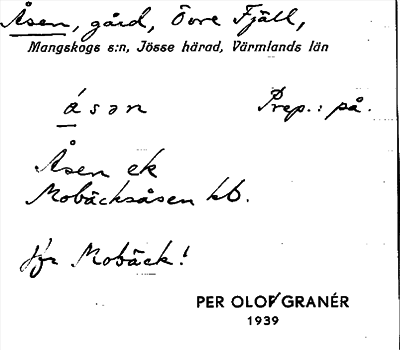 Åsen, gård, Övre Fjäll,
Mangskogs s:n, Jösse härad, Värmlands län
åsən Prep.: på.
Åsen ek
Mobäcksåsen hb.
Jfr Mobäck!
PER OLOF GRANÉR
1939